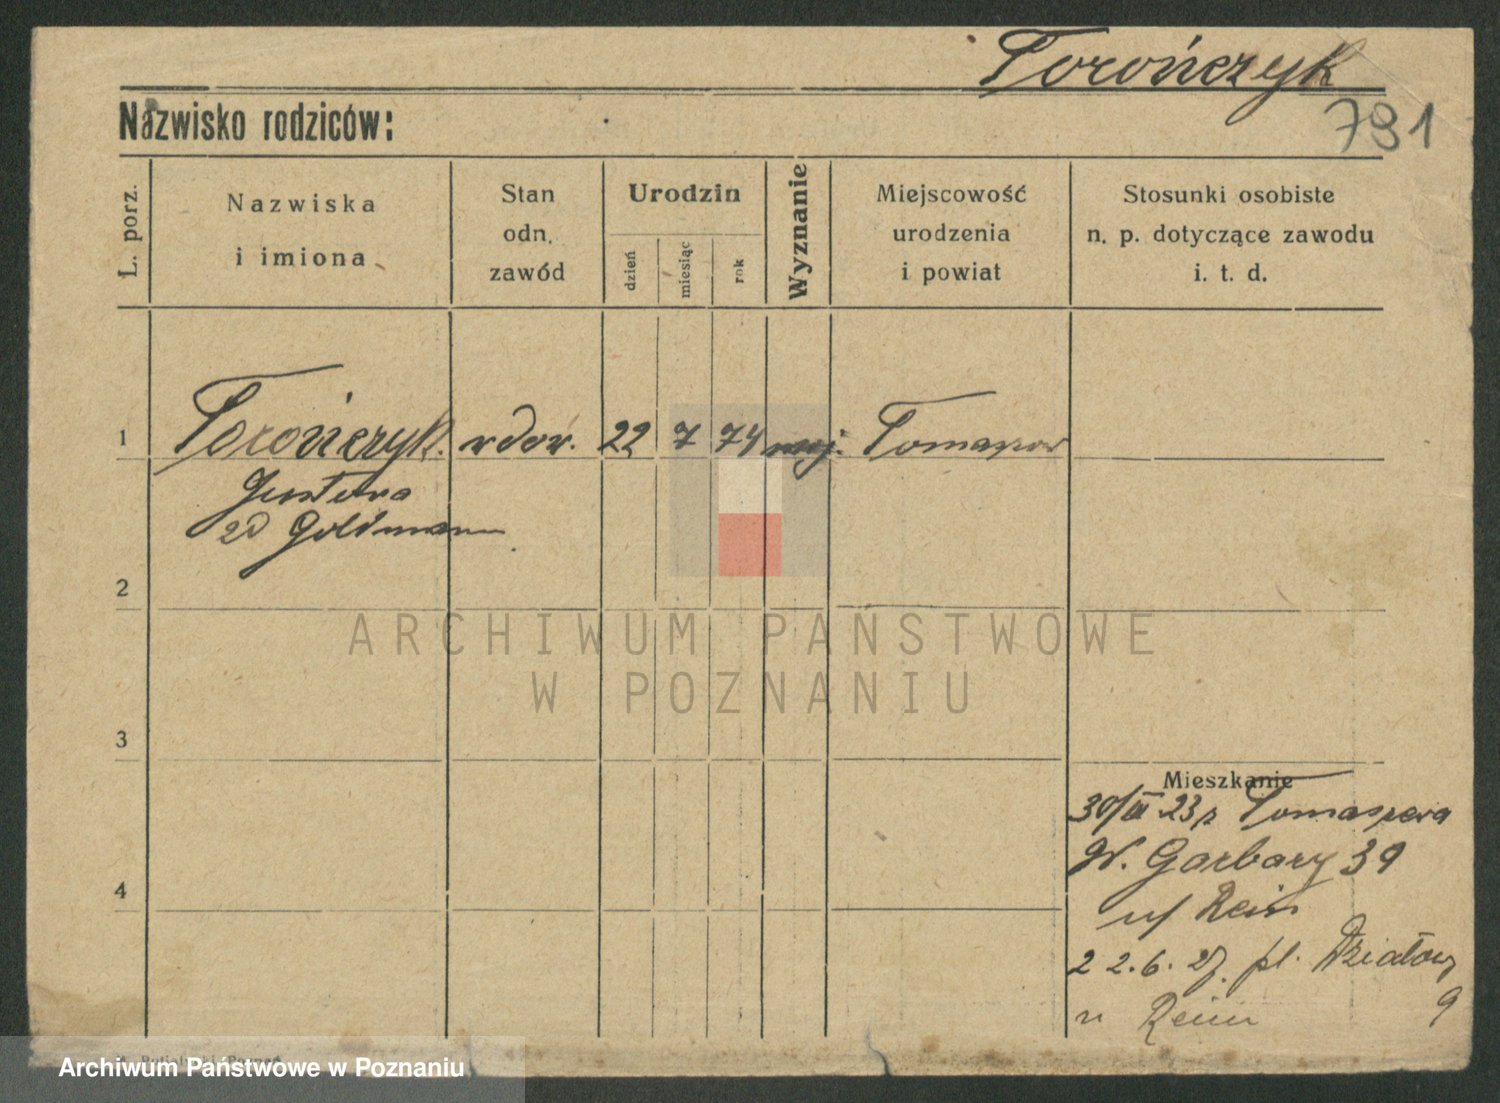 Torończyk
791
Nazwisko rodziców:
L. porz.
Nazwiska
i imiona
Stan
odn.
zawód
Urodzin
dzień
miesiąc
rok
Wyznanie
Miejscowość
urodzenia
i powiat
Stosunki osobiste
n. p. dotyczące zawodu
i. t. d.
1 Torończyk. wdow. 22 7 74 moj. Tomaszow
Gustawa
zd Goldmann
2
ARCHIWUM PAŃSTWOWE
W POZNANIU
3
Mieszkanie
30/III 23 z Tomaszowa
W. Garbary 39
u/ Reim
4
22.6.27. pl. Działowy
9
u Reim
Archiwum Państwowe w Poznaniu